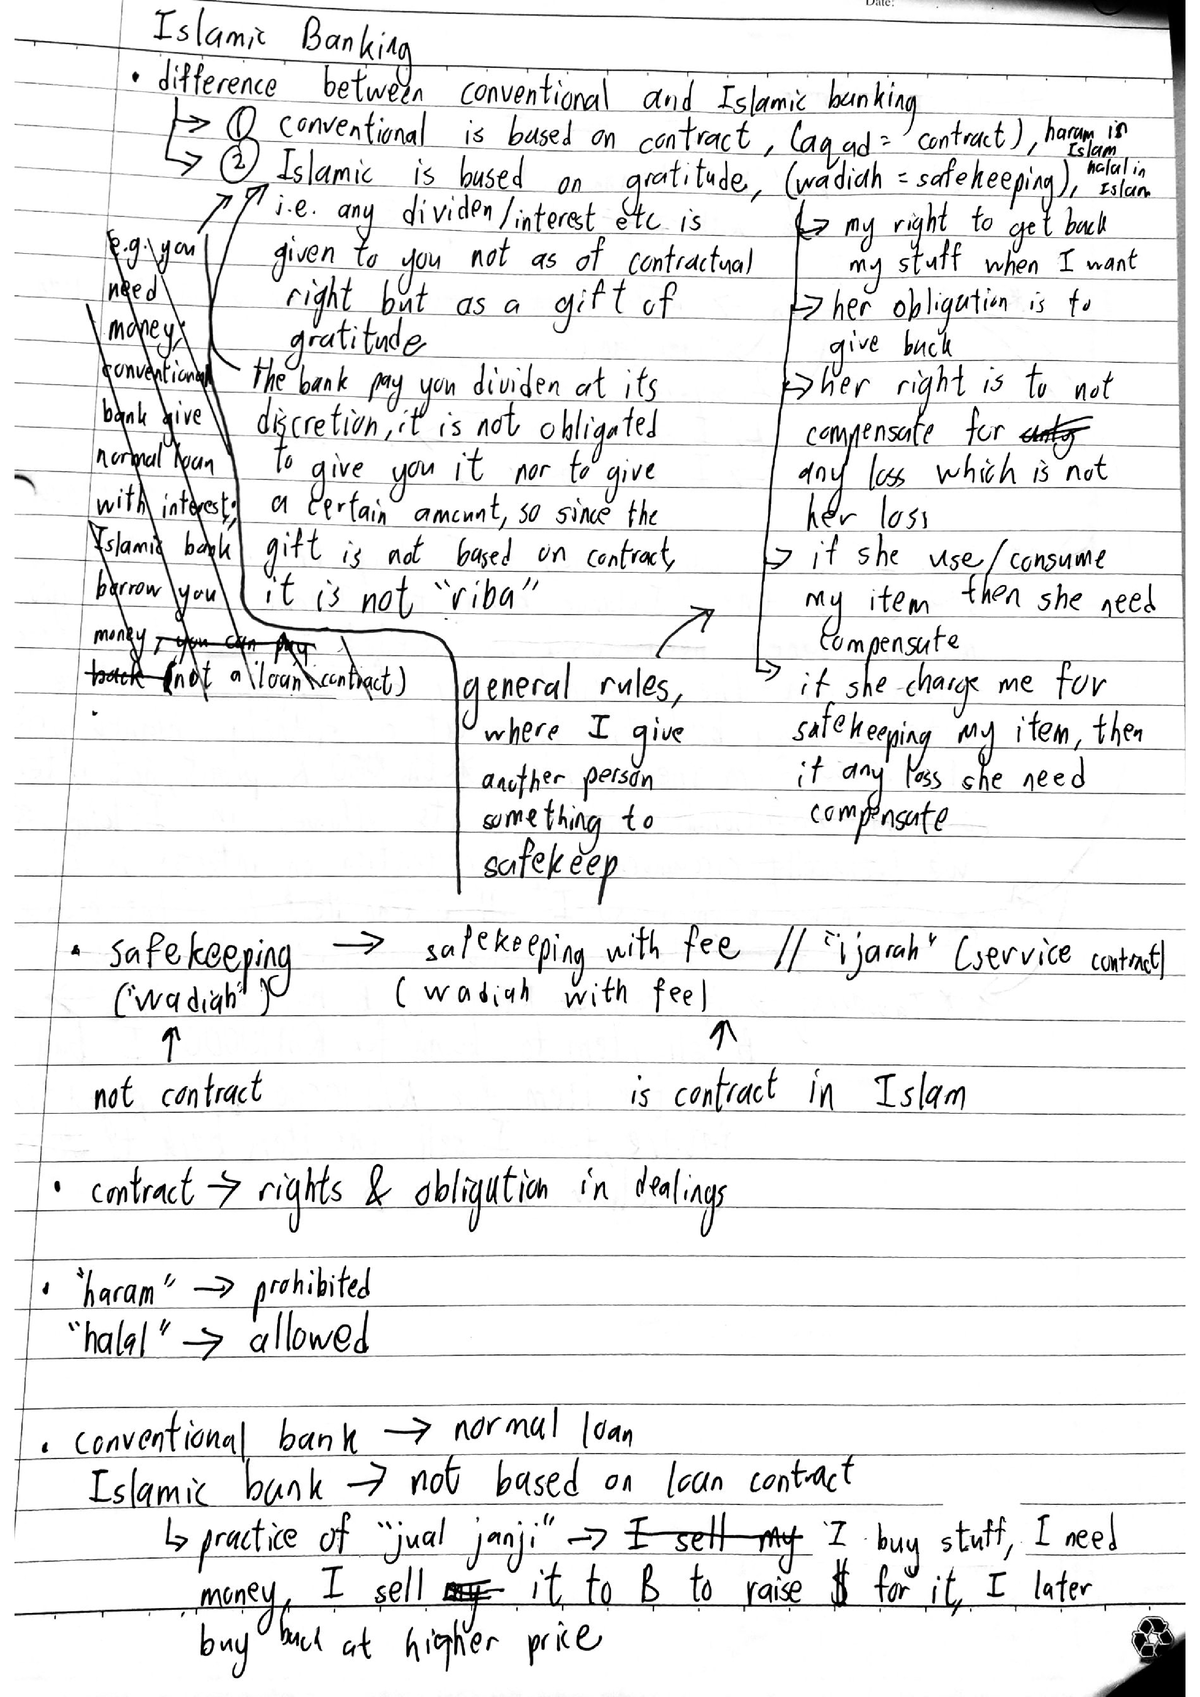 Date:
Islamic Banking
• difference between conventional and Islamic banking
→ ① conventional is based on contract, (aqad = contract), haram in Islam
→ ② Islamic is based on gratitude, (wadiah = safekeeping), halal in Islam
i.e. any dividen/interest etc is
given to you not as of contractual
right but as a gift of
gratitude
the bank pay you dividen at its
discretion, it is not obligated
to give you it nor to give
a certain amount, so since the
gift is not based on contract,
it is not "riba"
e.g. you
need
money,
conventional
bank give
normal loan
with interest;
Islamic bank
borrow you
money, you can pay
back (not a loan contract)
→ my right to get back
my stuff when I want
→ her obligation is to
give back
→ her right is to not
compensate for
any loss which is not
her loss
→ if she use/consume
my item then she need
compensate
↳ if she charge me for
safekeeping my item, then
if any loss she need
compensate
general rules,
where I give
another person
something to
safekeep
• safekeeping → safekeeping with fee // "ijarah" (service contract)
("wadiah") (wadiah with fee)
↑ ↑
not contract is contract in Islam
• contract → rights & obligation in dealings
• "haram" → prohibited
"halal" → allowed
• conventional bank → normal loan
Islamic bank → not based on loan contract
↳ practice of "jual janji" → I sell my I buy stuff, I need
money, I sell my it to B to raise $ for it, I later
buy back at higher price